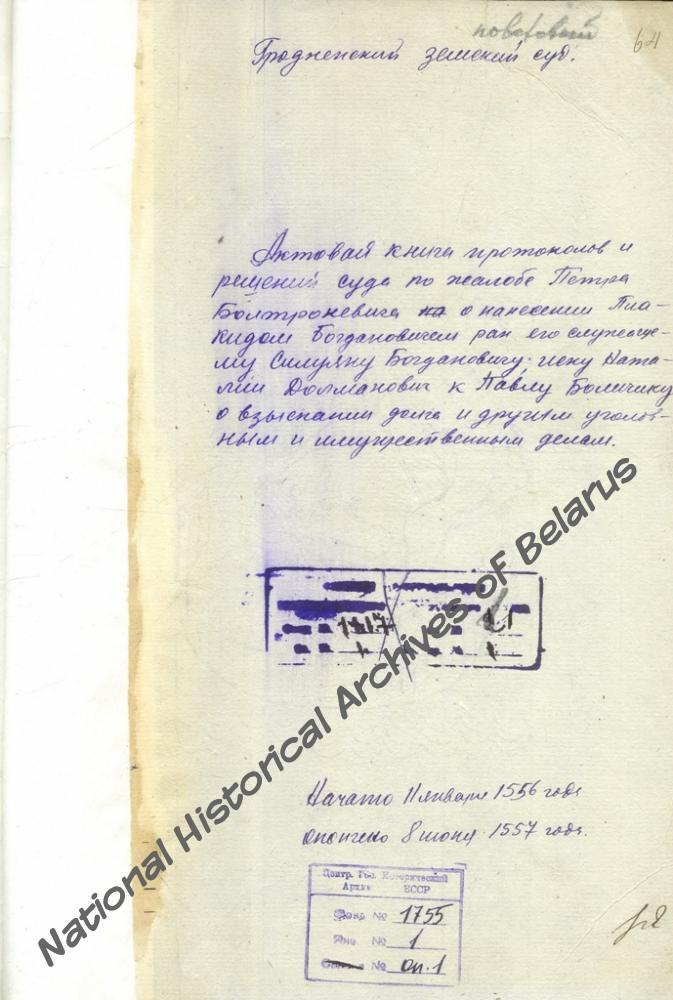 поветовый
64
Гродненский земский суд.
Актовая книга протоколов и
решений суда по жалобе Петра
Болтроневича на о нанесении Пла-
кидом Богдановичем ран его служаще-
му Силуяну Богдановичу; иску Ната-
лии Долманович к Павлу Боличику
о взыскании долга и другим уголов-
ным и имущественным делам.
1
Начато 11 января 1556 года
окончено 8 июня 1557 года.
Центр. Гос. Исторический
Архив БССР
Фонд № 1755
№ 1
№ оп. 1
National Historical Archives of Belarus